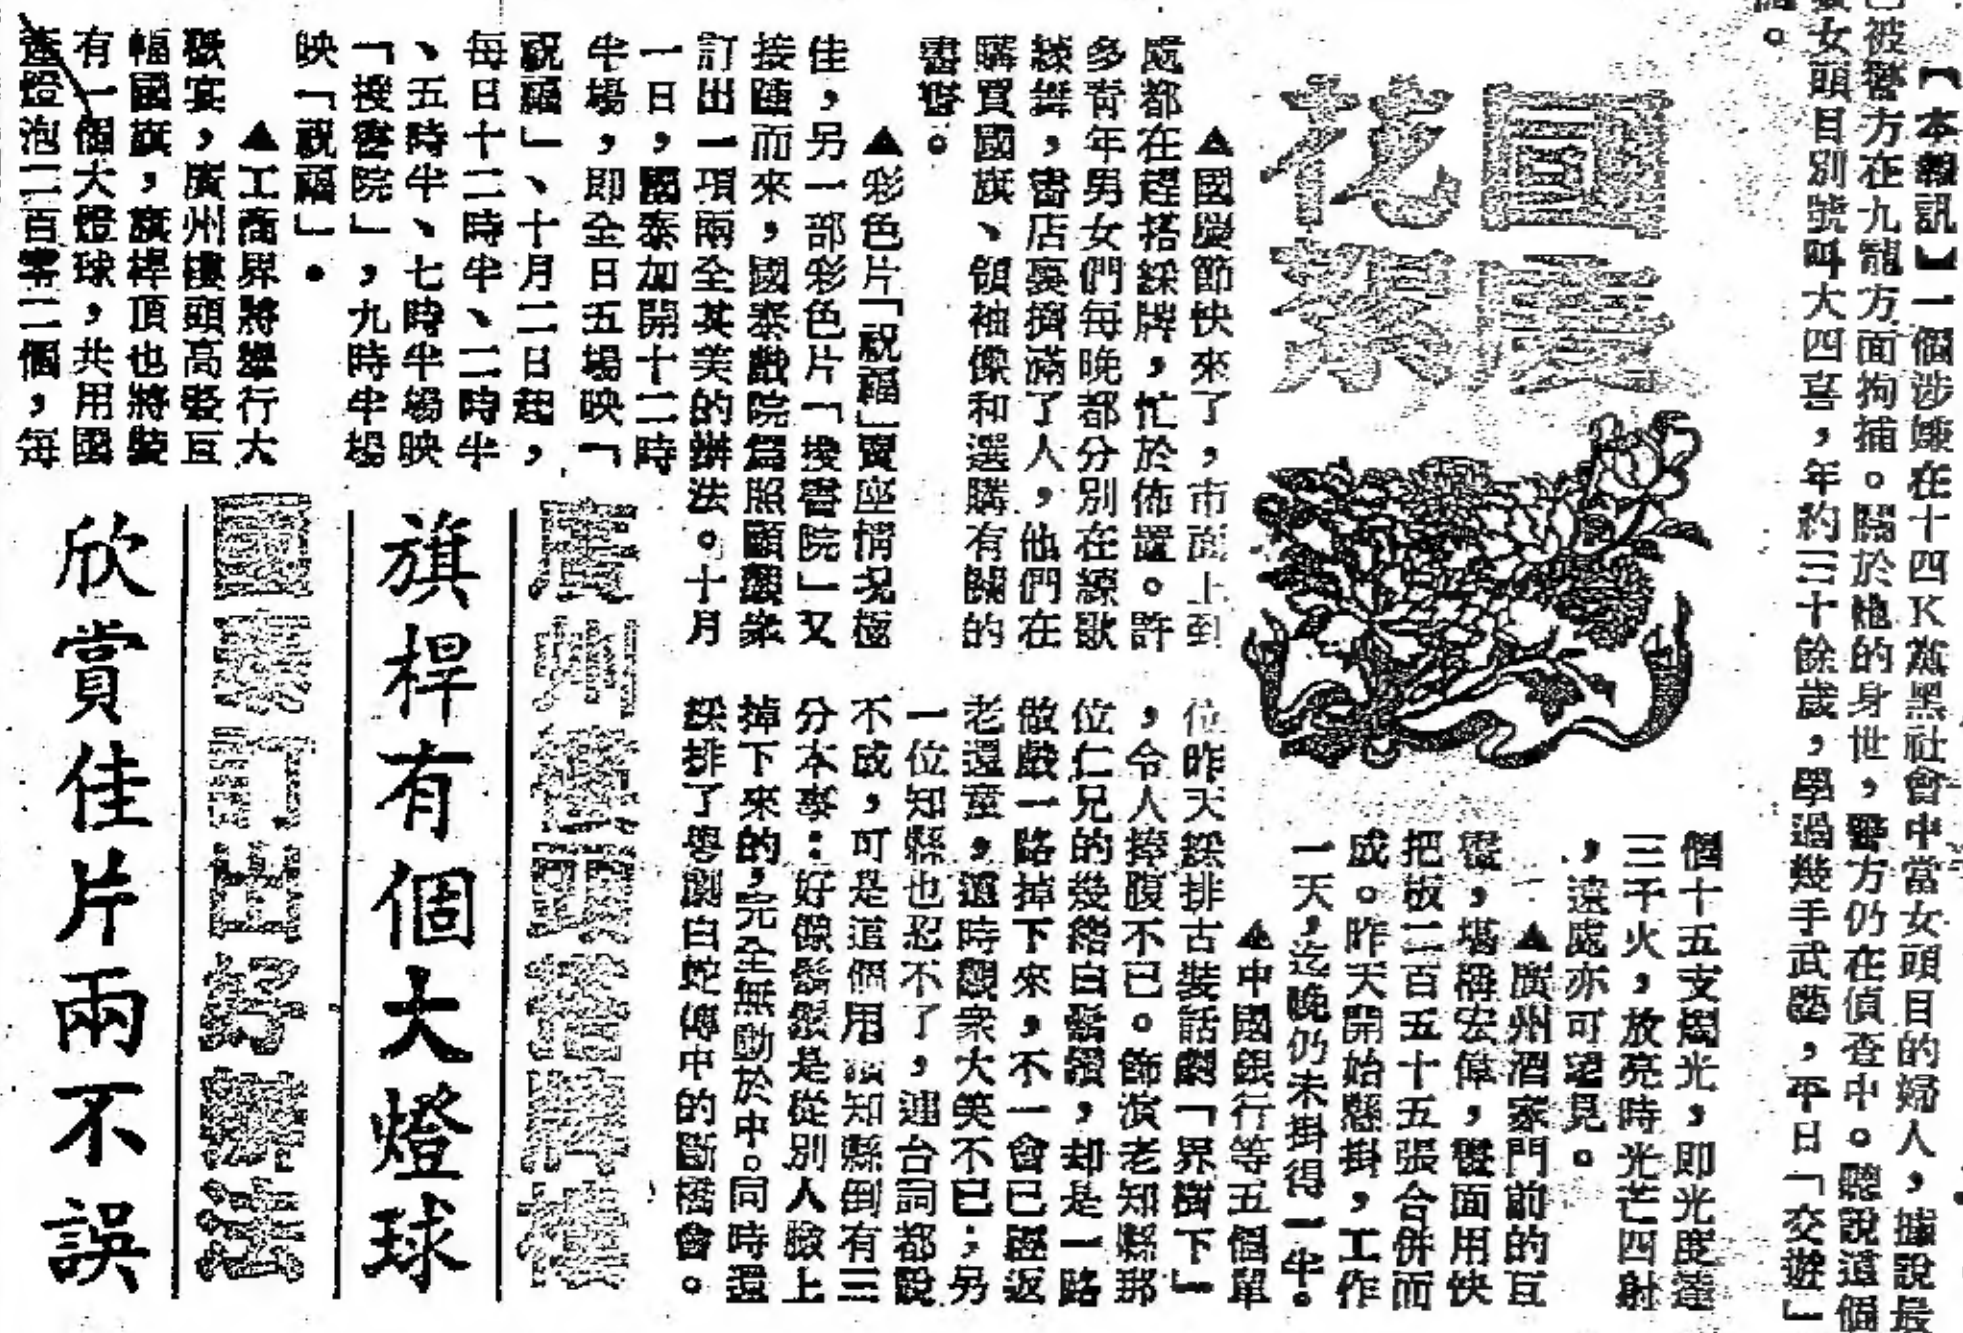 【本報訊】一個涉嫌在十四K黨黑社會中當女頭目的婦人，據說最
已被警方在九龍方面拘捕。關於她的身世，警方仍在偵查中。聽說這個
女頭目別號叫大四喜，年約三十餘歲，學過幾手武藝，平日「交遊」
。
國慶
花絮
▲國慶節快來了，市面上到
處都在趕搭綵牌，忙於佈置。許
多青年男女們每晚都分別在練歌
練舞，書店裏擠滿了人，他們在
購買國旗、領袖像和選購有關的
書咭。
▲彩色片「祝福」賣座情况極
佳，另一部彩色片「搜書院」又
接踵而來，國泰戲院爲照顧觀衆
訂出一項兩全其美的辦法。十月
一日，國泰加開十二時
半場，即全日五場映「
祝福」、十月二日起，
每日十二時半、二時半
、五時半、七時半場映
「搜書院」，九時半場
映「祝福」。
▲工商界將舉行大
聯宴，廣州樓頭高豎巨
幅國旗，旗桿頂也將裝
有一個大燈球，共用國
產燈泡二百零二個，每
個十五支燭光，即光度達
三千火，放亮時光芒四射
，遠處亦可望見。
▲廣州酒家門前的巨
型，堪稱宏偉，壁面用快
把板二百五十五張合併而
成。昨天開始懸掛，工作
一天，迄晚仍未掛得一半。
▲中國銀行等五個單
位昨天綵排古裝話劇「界街下」
，令人捧腹不已。飾演老知縣那
位仁兄的幾綹白鬍鬚，却是一路
做戲一路掉下來，不一會已經返
老還童，這時觀衆大笑不已；另
一位知縣也忍不了，連台詞都說
不成，可是這個用頂知縣倒有三
分本事：好像鬍鬚是從別人臉上
掉下來的，完全無動於中。同時還
綵排了粵劇白蛇傳中的斷橋會。
廣州樓頭
旗桿有個大燈球
國泰訂出好辦法
欣賞佳片兩不誤